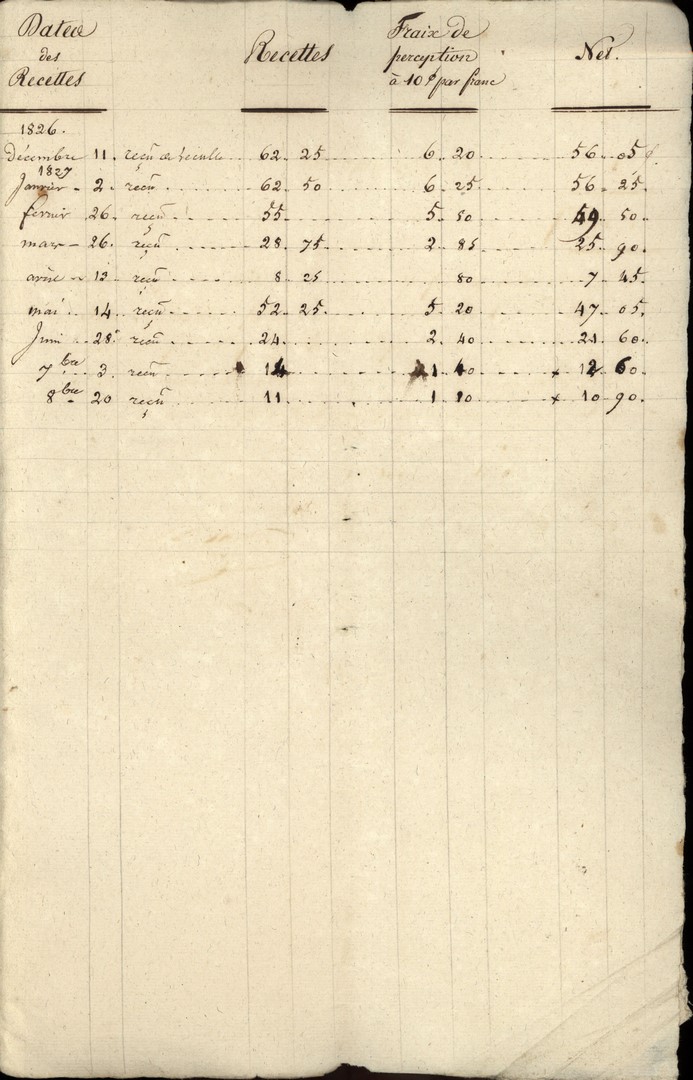 Dates des Recettes | Recettes | Fraix de perception à 10 % par franc | Net.
1826.
Décembre 11. reçu de 62. 25 6. 20 56. 05
1827
Janvier 2. reçu 62. 50 6. 25 56. 25.
fevrier 26. reçu 55 5. 50 49 50.
mars 26. reçu 28. 75 2. 85 25. 90.
avril 13 reçu 8. 25 80 7. 45.
mai 14. reçu 52. 25 5. 20 47. 05.
Juin 28. reçu 24. 2. 40 21. 60.
7bre 3. reçu 14 1 40 x 12 60.
8bre 20 reçu 11 1 10 x 10 90.